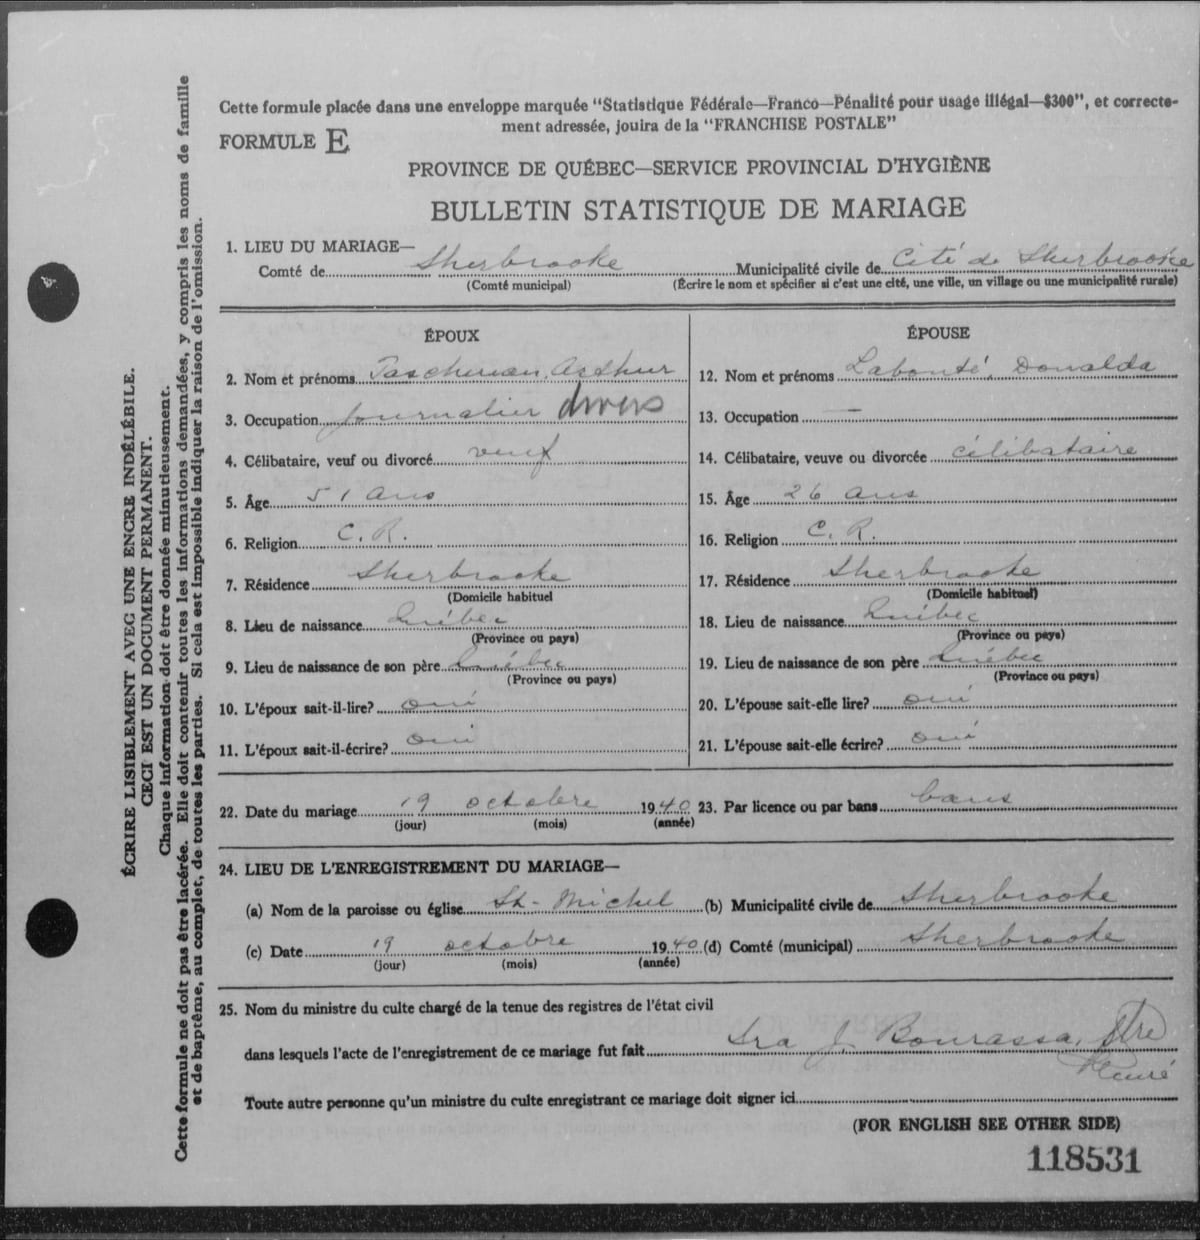 Cette formule placée dans une enveloppe marquée "Statistique Fédérale—Franco—Pénalité pour usage illégal—$300", et correcte-
ment adressée, jouira de la "FRANCHISE POSTALE"
FORMULE E
PROVINCE DE QUÉBEC—SERVICE PROVINCIAL D'HYGIÈNE
BULLETIN STATISTIQUE DE MARIAGE
1. LIEU DU MARIAGE—
Comté de Sherbrooke Municipalité civile de Cité de Sherbrooke
(Comté municipal) (Écrire le nom et spécifier si c'est une cité, une ville, un village ou une municipalité rurale)
ÉPOUX
2. Nom et prénoms Arthur
3. Occupation journalier divers
4. Célibataire, veuf ou divorcé veuf
5. Âge 51 ans
6. Religion C. R.
7. Résidence Sherbrooke
(Domicile habituel
8. Lieu de naissance Québec
(Province ou pays)
9. Lieu de naissance de son père Québec
(Province ou pays)
10. L'époux sait-il-lire? oui
11. L'époux sait-il-écrire? oui
ÉPOUSE
12. Nom et prénoms Labonté, Donalda
13. Occupation —
14. Célibataire, veuve ou divorcée célibataire
15. Âge 26 ans
16. Religion C. R.
17. Résidence Sherbrooke
(Domicile habituel)
18. Lieu de naissance Québec
(Province ou pays)
19. Lieu de naissance de son père Québec
(Province ou pays)
20. L'épouse sait-elle lire? oui
21. L'épouse sait-elle écrire? oui
22. Date du mariage 19 octobre 1940 23. Par licence ou par bans bans
(jour) (mois) (année)
24. LIEU DE L'ENREGISTREMENT DU MARIAGE—
(a) Nom de la paroisse ou église St-Michel (b) Municipalité civile de Sherbrooke
(c) Date 19 octobre 1940 (d) Comté (municipal) Sherbrooke
(jour) (mois) (année)
25. Nom du ministre du culte chargé de la tenue des registres de l'état civil
dans lesquels l'acte de l'enregistrement de ce mariage fut fait Ira J. Bourassa, Ptre
Curé
Toute autre personne qu'un ministre du culte enregistrant ce mariage doit signer ici
(FOR ENGLISH SEE OTHER SIDE)
118531
ÉCRIRE LISIBLEMENT AVEC UNE ENCRE INDÉLÉBILE.
CECI EST UN DOCUMENT PERMANENT.
Chaque information doit être donnée minutieusement.
Cette formule ne doit pas être lacérée. Elle doit contenir toutes les informations demandées, y compris les noms de famille
et de baptême, au complet, de toutes les parties. Si cela est impossible indiquer la raison de l'omission.